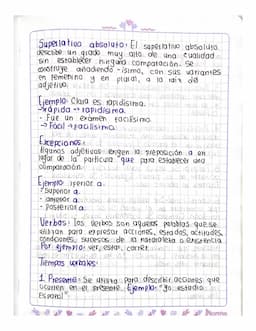 Superlativo absoluto: El superlativo absoluto
describe un grado muy alto de una cualidad
sin establecer ninguna comparación. Se
construye añadiendo -ísimo, con sus variantes
en femenino y en plural, a la raíz del
adjetivo.
Ejemplo: Clara es rapidísima.
→ rápida → rapidísima.
· Fue un examen facilísimo.
→ Fácil → facilísimo.
Excepciones:
Algunos adjetivos exigen la preposición a en
lugar de la partícula "que" para establecer una
comparación.
Ejemplo: Inferior a.
· Superior a.
· anterior a.
· Posterior a.
Verbos: los verbos son aquellas palabras que se
utilizan para expresar acciones, estados, actitudes,
condiciones, sucesos de la naturaleza o existencia
Por ejemplo: ver, estar, correr.
Tiempos verbales:
1. Presente: Se utiliza para describir acciones que
ocurren en el presente. Ejemplo: "Yo estudio
Español"